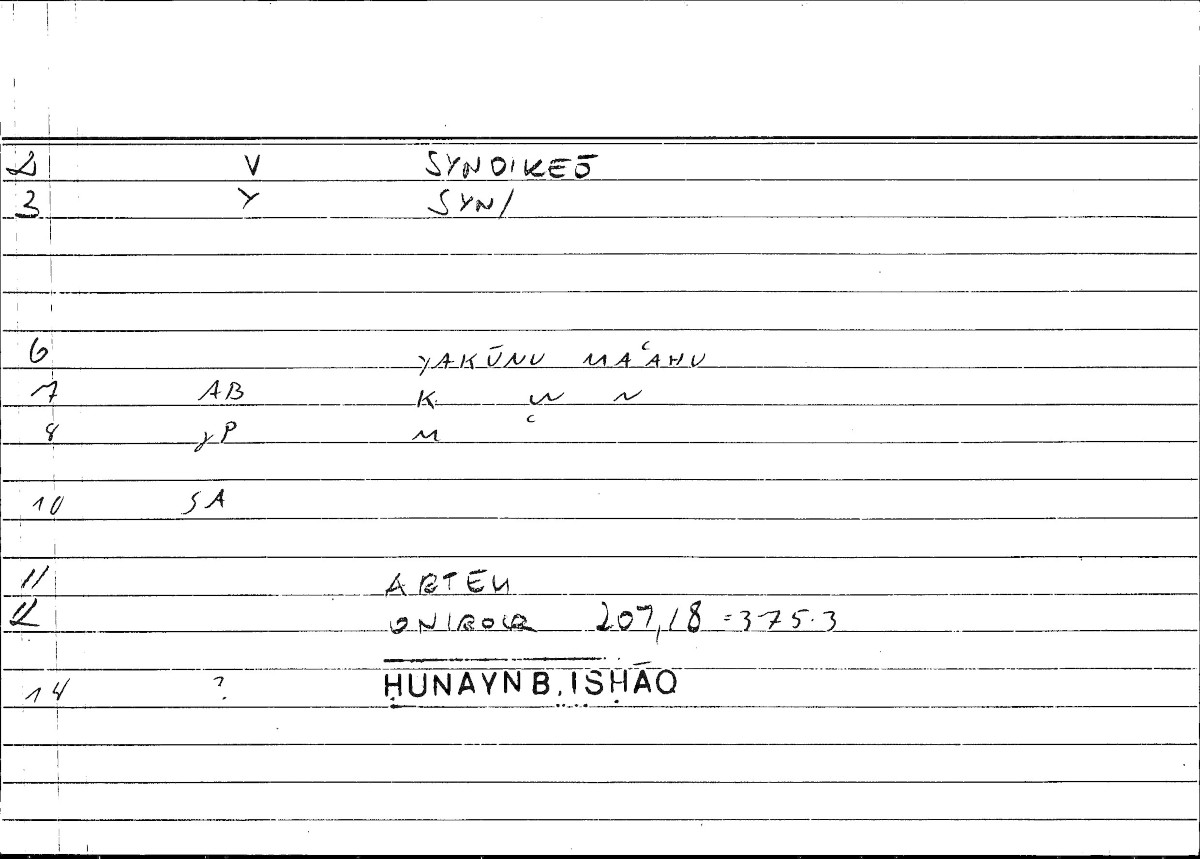 2 V SYNDIKEŌ
3 Y SYN/
6 YAKŪNU MAʿAHU
7 AB K W N
8 γP M ʿ
10 SA
11 ARTEM
12 ONIROCR 207,18 = 375.3
14 ? ḤUNAYN B. ISḤĀQ